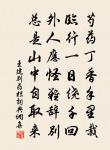 芍药丁香手里栽
临行一日绕千回
外人應怪难辞别
总是山中自取来
王建别药栏